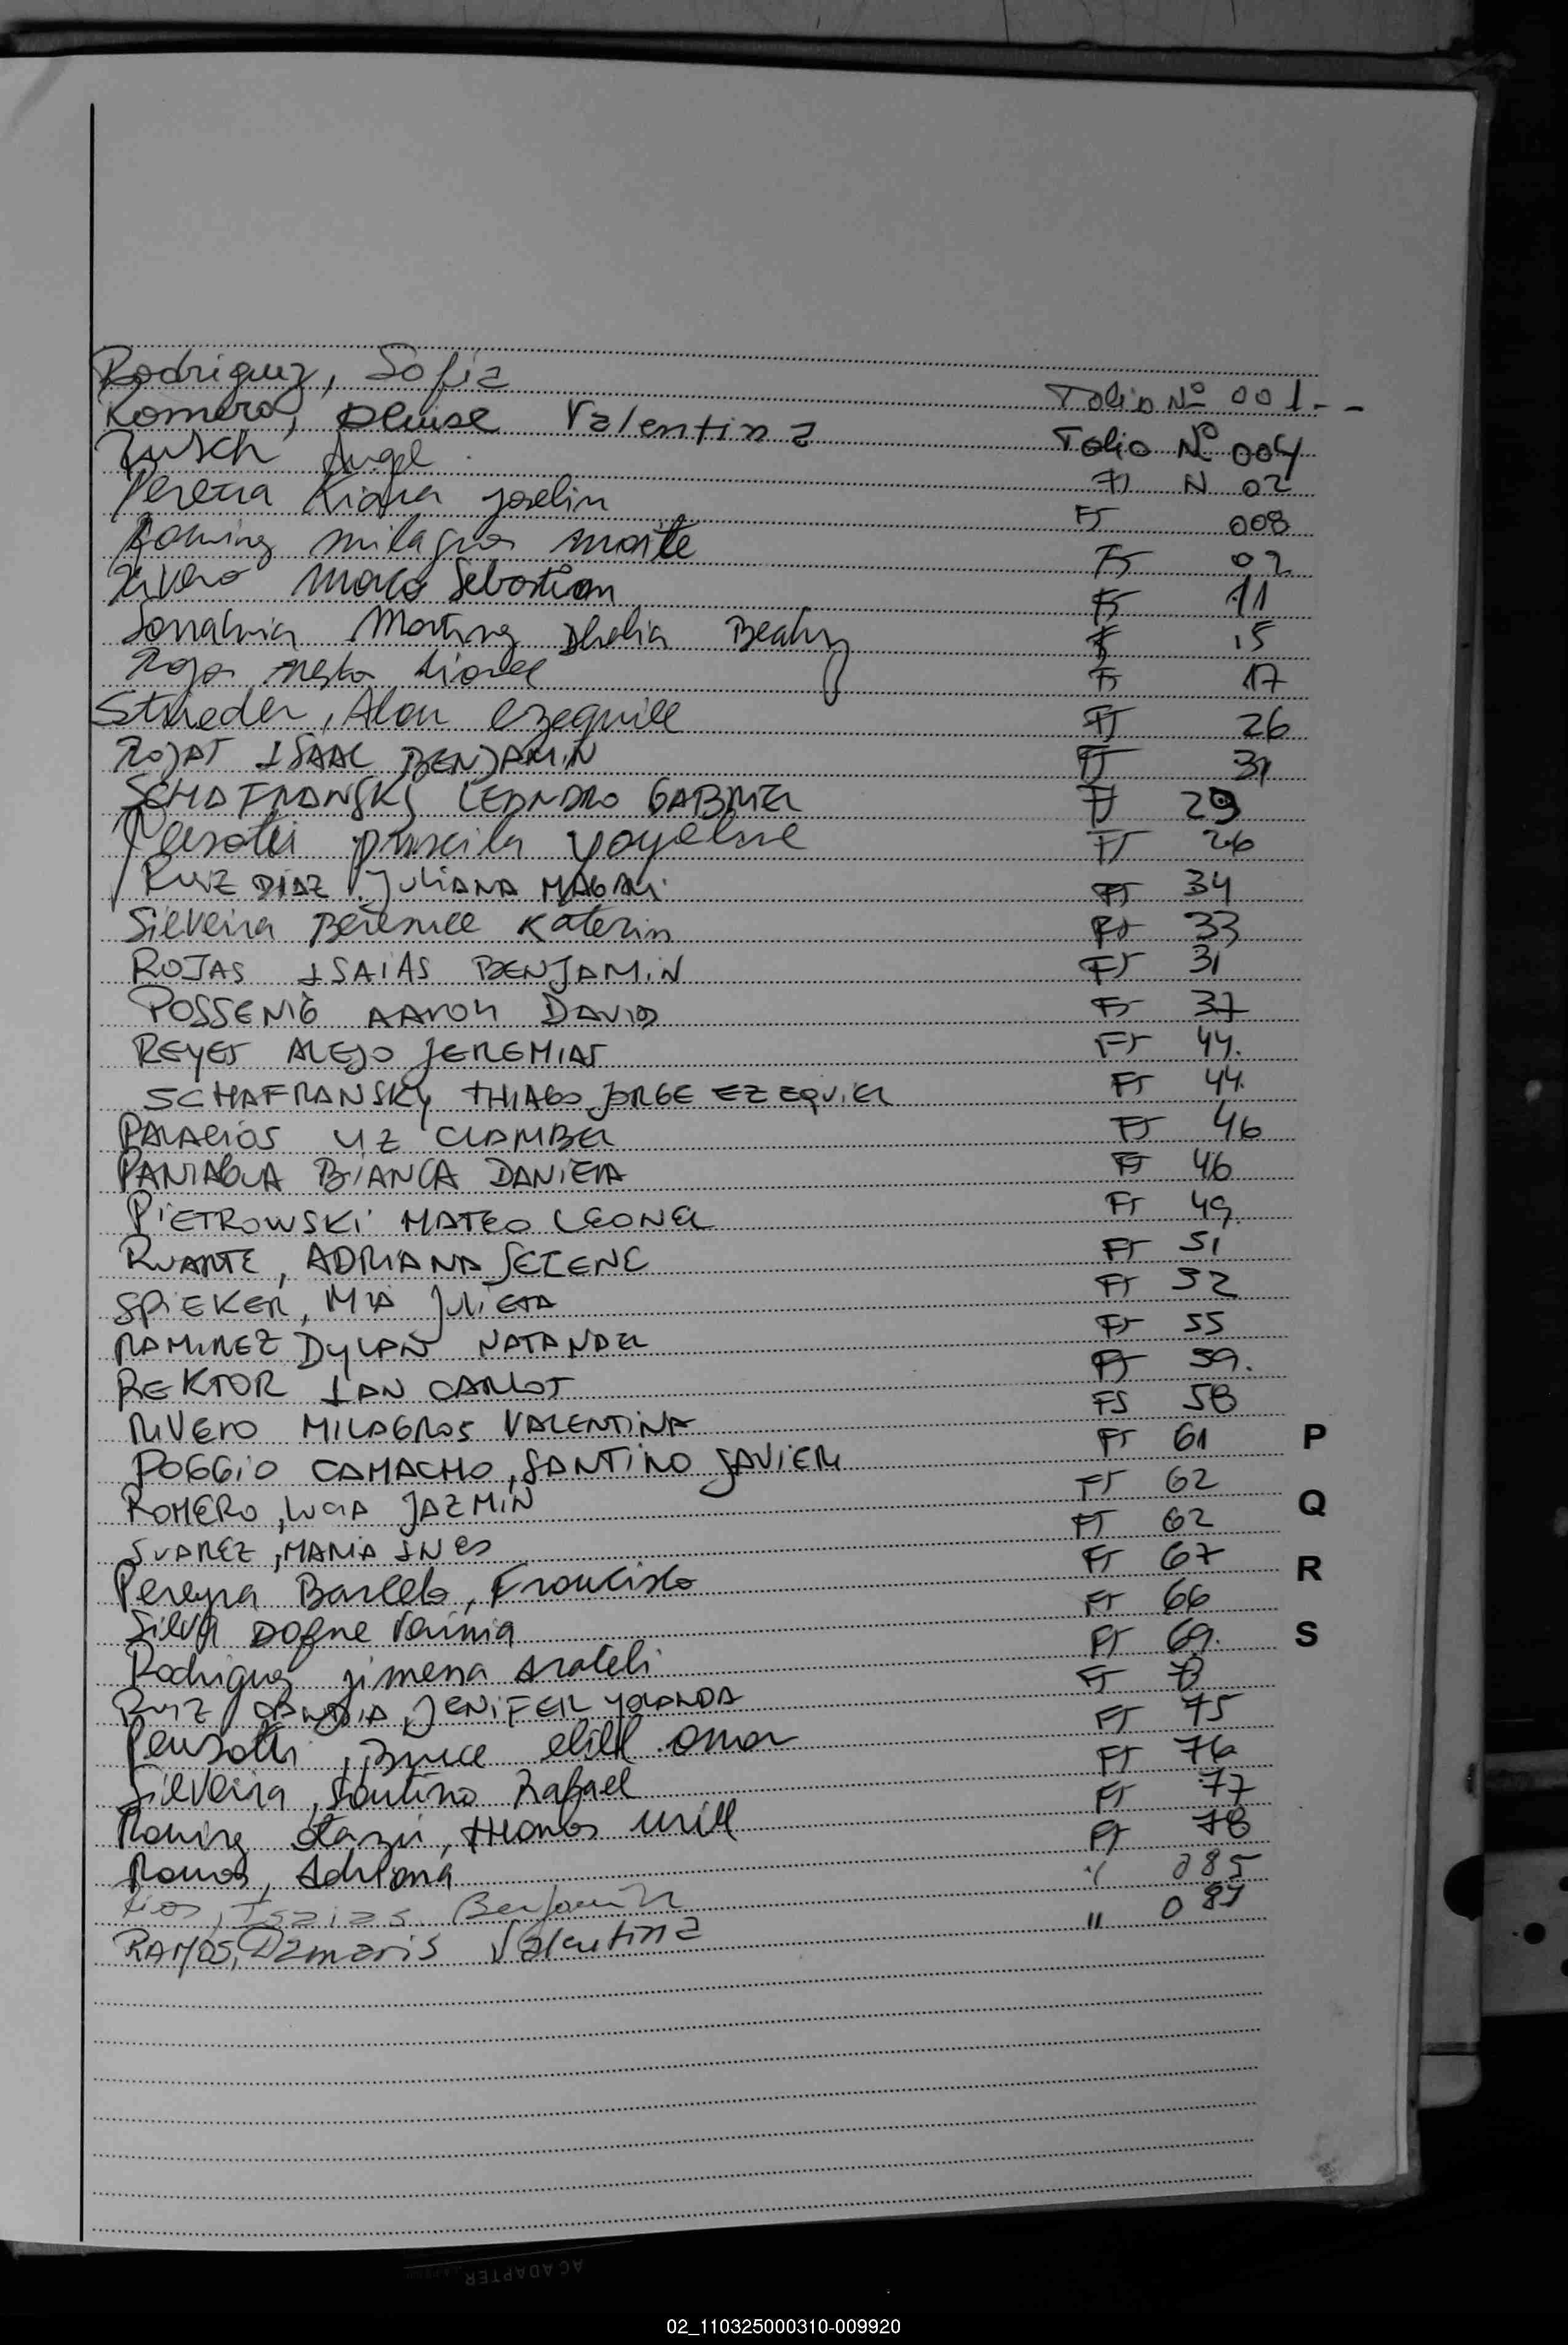 Rodriguez, Sofia Folio Nº 001.--
Romero, Denise Valentina Folio Nº 004
Rusch Angel Fs N 02
Pereira Kiara Joselin Fs 008
Ramirez Milagros Maite Fs 02
Rivero Marco Sebastian Fs 11
Sanabria Martinez Dhalia Beatriz Fs 15
Rojas Nestor Lionel Fs 17
Strieder, Alan Ezequiel Fs 26
ROJAS ISAAC BENJAMIN Fs 31
SCHAFRANSKY LEANDRO GABRIEL Fs 29
Pensotti Priscila Fs 26
RUIZ DIAZ JULIANA MAGALI Fs 34
Silveira Berenice Katerin Fs 33
ROJAS ISAIAS BENJAMIN Fs 31
AARON DAVID Fs 37
REYES ALEJO JEREMIAS Fs 44.
SCHAFRANSKY THIAGO JORGE EZEQUIEL Fs 44.
PALACIOS LIZ CLAMBEL Fs 46
PANIAGUA BIANCA DANIELA Fs 46
PIETROWSKI MATEO LEONEL Fs 49.
RUARTE, ADRIANA SELENE Fs 51
SPIEKER, MIA JULIETA Fs 52
RAMIREZ DYLAN NATANAEL Fs 55
REKTOR IAN CARLOS Fs 59.
RIVERO MILAGROS VALENTINA FS 58
POGGIO CAMACHO, SANTINO JAVIER Fs 61
P
ROMERO, LUCIA JAZMIN Fs 62
Q
SUAREZ, MARIA INES Fs 62
Pereyra Barcelo, Francisco Fs 67
R
Silva Dafne Fs 66
S
Rodriguez Jimena Arateli Fs 69.
RUIZ JENIFER YOLANDA Fs
Pensotti, Bruce Omar Fs 75
Silveira, Santino Rafael Fs 76
Ramirez Thomas Uriel Fs 77
Ramos, Adriana Fs 78
Rios, Isaias Benjamin " 085
RAMOS, Damaris Valentina " 087
02_110325000310-009920